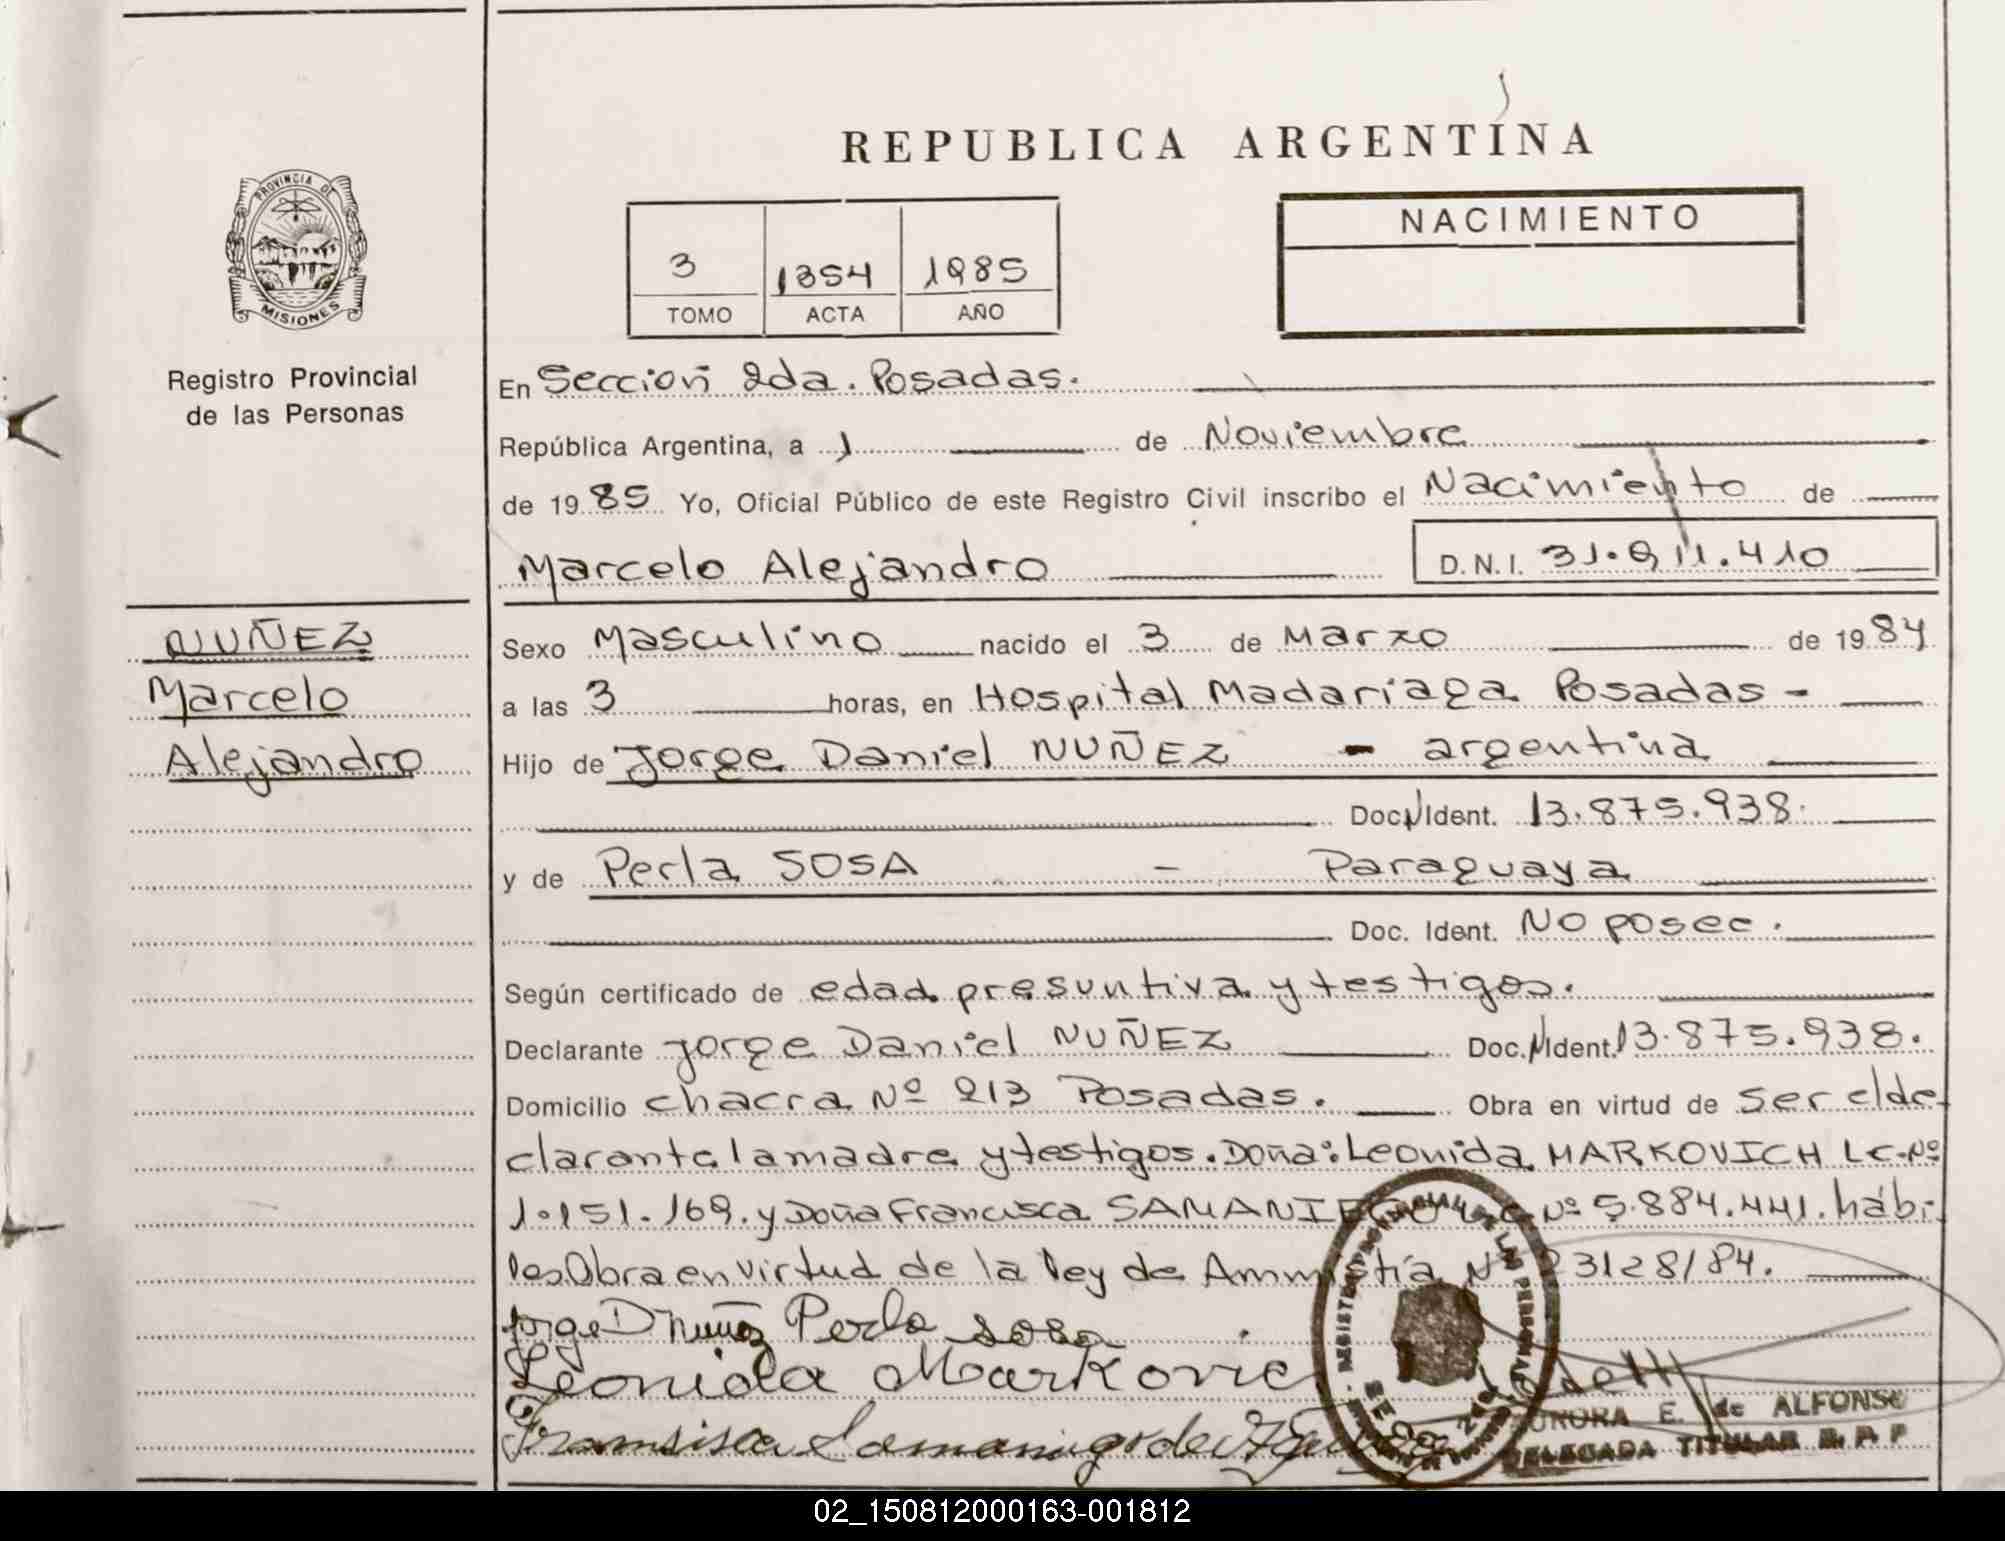 REPUBLICA ARGENTINA
PROVINCIA DE
MISIONES
Registro Provincial
de las Personas
3 1354 1985
TOMO ACTA AÑO
NACIMIENTO
En Sección 2da. Posadas.
República Argentina, a 1 de Noviembre
de 1985 Yo, Oficial Público de este Registro Civil inscribo el Nacimiento de
Marcelo Alejandro D.N.I. 31.911.410
NUÑEZ
Marcelo
Alejandro
Sexo Masculino nacido el 3 de Marzo de 1984
a las 3 horas, en Hospital Madariaga Posadas -
Hijo de Jorge Daniel NUÑEZ - argentina
Doc. Ident. 13.875.938.
y de Perla SOSA - Paraguaya
Doc. Ident. No posee.
Según certificado de edad presuntiva y testigos.
Declarante Jorge Daniel NUÑEZ Doc. Ident. 13.875.938.
Domicilio chacra Nº 213 Posadas. Obra en virtud de ser el de
clarante la madre y testigos. Doña: Leonida MARKOVICH L.C. Nº
1.151.169. y Doña Francisca SAMANIEGO L.C. Nº 5.884.441. hábi-
les Obra en virtud de la ley de Amnistía Nº 23128/84.
Jorge D Nuñez Perla Sosa
Leonida Markovic
Fransisca Samanigo de
E. de ALFONSO
DELEGADA TITULAR R. P. P
02_150812000163-001812